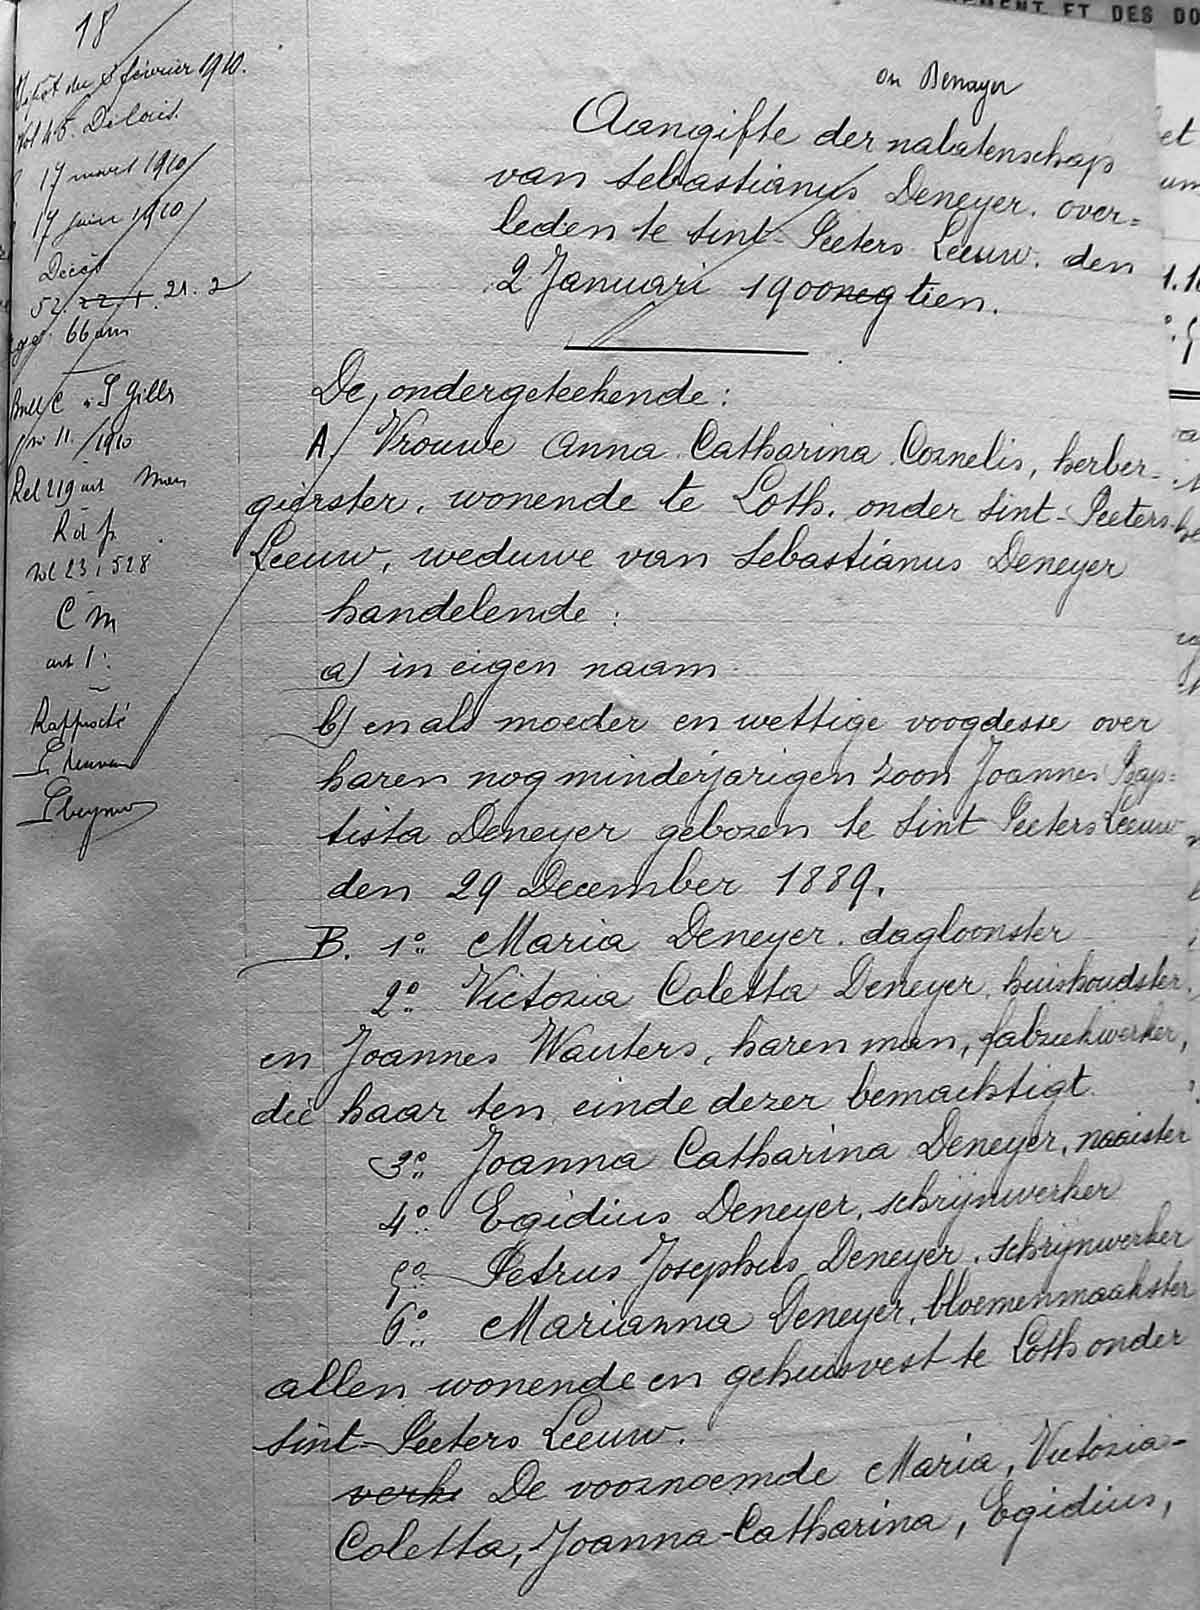 18
Dépôt du 8 février 1910.
Vol 45. Délais.
17 mars 1910
17 juin 1910
Décès
52. 22/1. 21. 2
66 ans
S Gills
no 11. /1910
Rel 219 art
R d p.
vol 23, 528
C M
art 1.
EMENT ET DES DO
ou Denayer
Aangifte der nalatenschap
van Sebastianus Deneyer. over=
leden te Sint-Peeters-Leeuw. den
2 Januari 1900neg tien.
De ondergeteekende:
A/ Vrouwe Anna Catharina Cornelis, herber-
gierster, wonende te Loth. onder Sint-Peeters-
Leeuw, weduwe van Sebastianus Deneyer
handelende:
a) in eigen naam
b) en als moeder en wettige voogdesse over
haren nog minderjarigen zoon Joannes Bap=
tista Deneyer geboren te Sint Peeters Leeuw
den 29 December 1889.
B. 1° Maria Deneyer. dagloonster
2° Victoria Coletta Deneyer, huishoudster,
en Joannes Wauters, haren man, fabriekwerker,
die haar ten einde dezer bemachtigt.
3° Joanna Catharina Deneyer, naaister
4° Egidius Deneyer, schrijnwerker
5° Petrus Josephus Deneyer. schrijnwerker
6° Marianna Deneyer, bloemenmaakster
allen wonende en gehuisvest te Loth onder
Sint-Peeters Leeuw.
verk De voornoemde Maria, Victoria-
Coletta, Joanna-Catharina, Egidius,